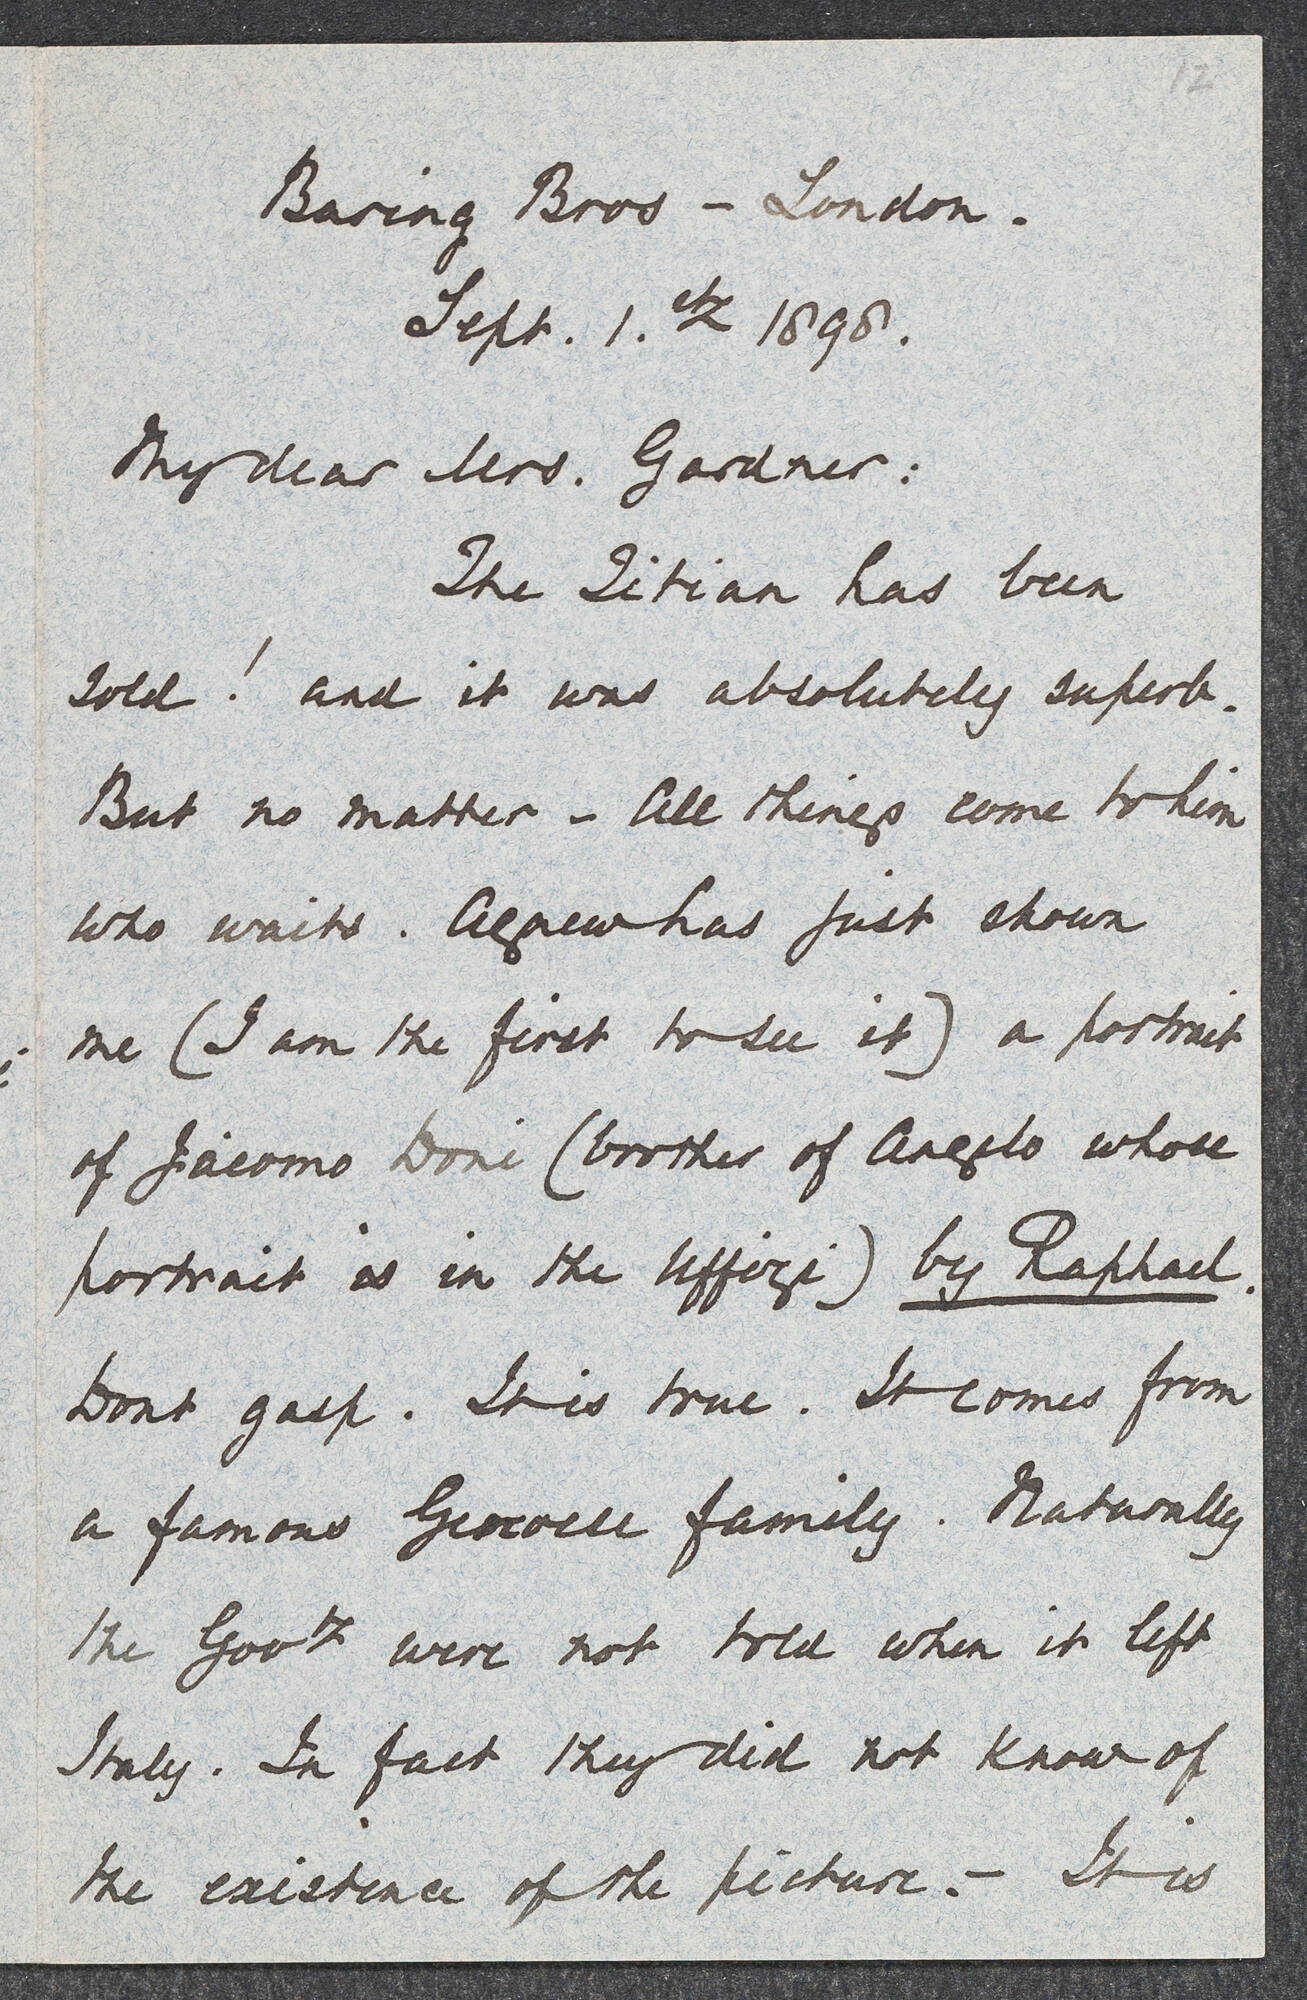 12
Baring Bros - London.
Sept. 1.st 1898.
My dear Mrs. Gardner:
The Titian has been
sold! and it was absolutely superb.
But no matter - All things come to him
who waits. Agnew has just shown
me (I am the first to see it) a portrait
of Giacomo Doni (brother of Angelo whose
portrait is in the Uffizi) by Raphael.
Dont gasp. It is true. It comes from
a famous Genoese family. Naturally
the Govt were not told when it left
Italy. In fact they did not know of
the existence of the picture. - It is